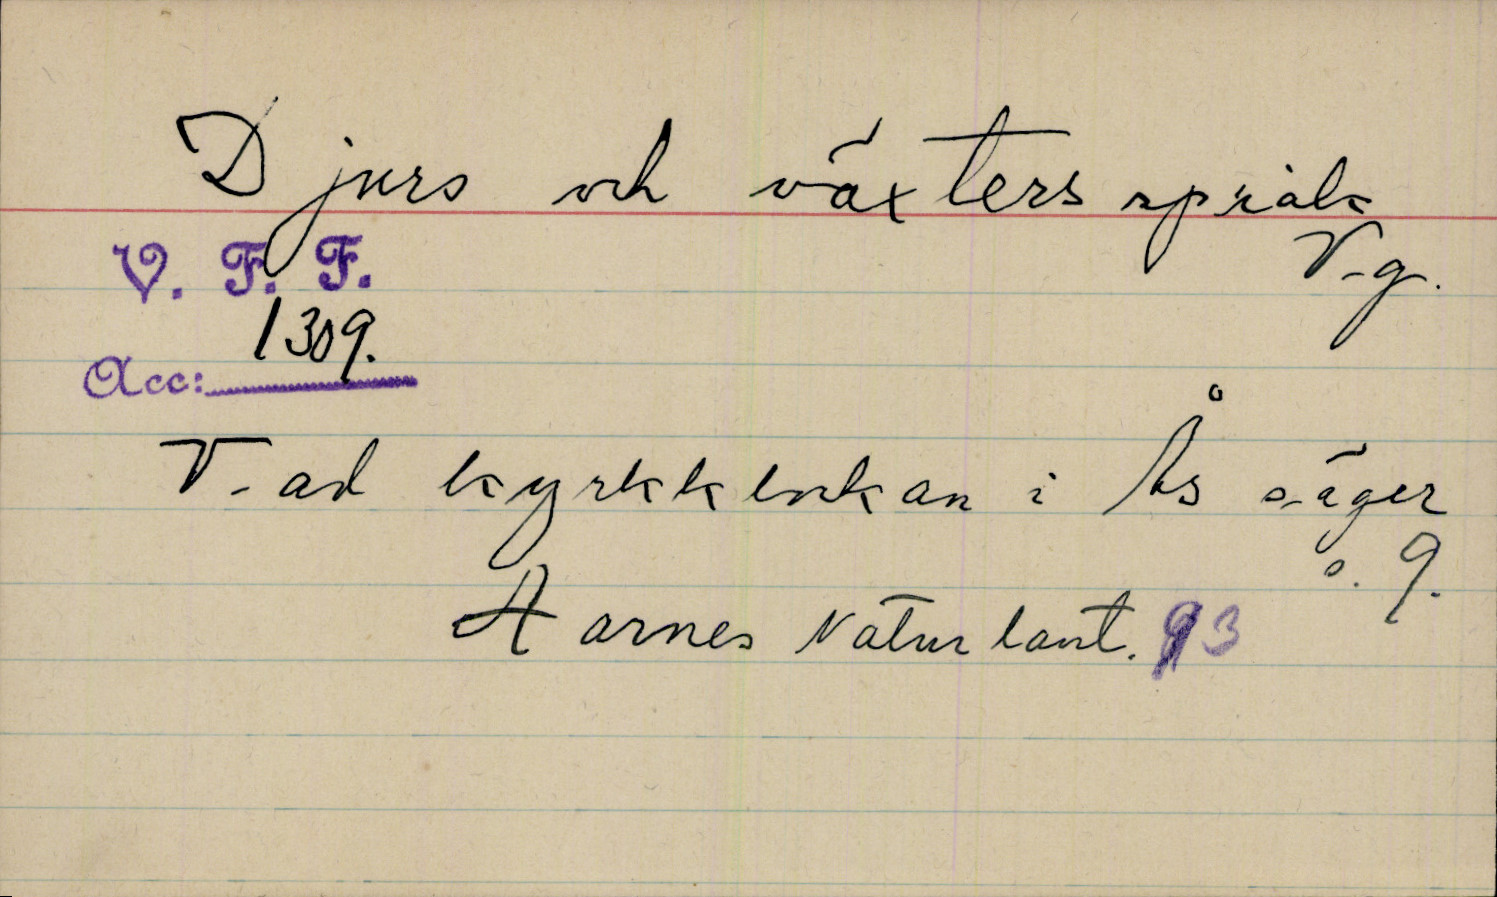 Djurs och växters språk
V-g.
V. F. F.
1309.
Acc:
Vad kyrkklockan i Ås säger
s. 9.
Aarnes Naturlaut. 93